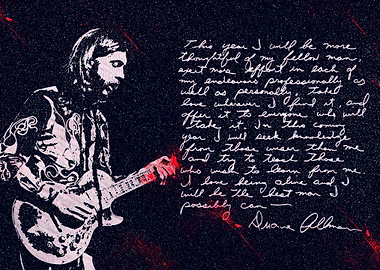 This year I will be more
thoughtful of my fellow man
exert more effort in each of
my endeavors professionally as
well as personally. Take
love wherever I find it, and
offer it to everyone who will
take it. In this coming
year I will seek knowledge
from those wiser than me
and try to teach those
who wish to learn from me.
I love being alive and I
will be the best man I
possibly can —
Duane Allman